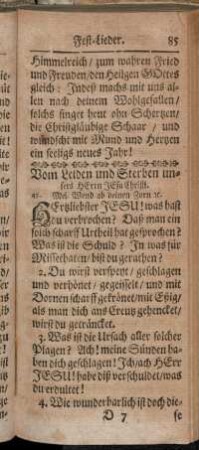 Fest-Lieder. 85
Himmelreich / zum wahren Fried
und Freuden / den Heilgen GOttes
gleich; Indeß machs mit uns al-
len nach deinem Wohlgefallen /
solchs singet heut ohn Schertzen /
die Christgläubige Schaar / und
wündscht mit Mund und Hertzen
ein seeligs neues Jahr!
Vom Leiden und Sterben un-
sers HErrn JEsu Christi.
41. Mel. Wend ab deinen Zorn ꝛc.
HErtzliebster JESU! was hast
du verbrochen? Daß man ein
solch scharff Urtheil hat gesprochen?
Was ist die Schuld? In was für
Missethaten / bist du gerathen?
2. Du wirst verspeyt / geschlagen
und verhönet / gegeisselt / und mit
Dornen scharff gekrönet / mit Eßig /
als man dich ans Creutz gehencket /
wirst du getränckt.
3. Was ist die Ursach aller solcher
Plagen? Ach! meine Sünden ha-
ben dich geschlagen! Ich / ach HErr
JESU! habe diß verschuldet / was
du erdultet!
4. Wie wunderbarlich ist doch die-
D 7 se